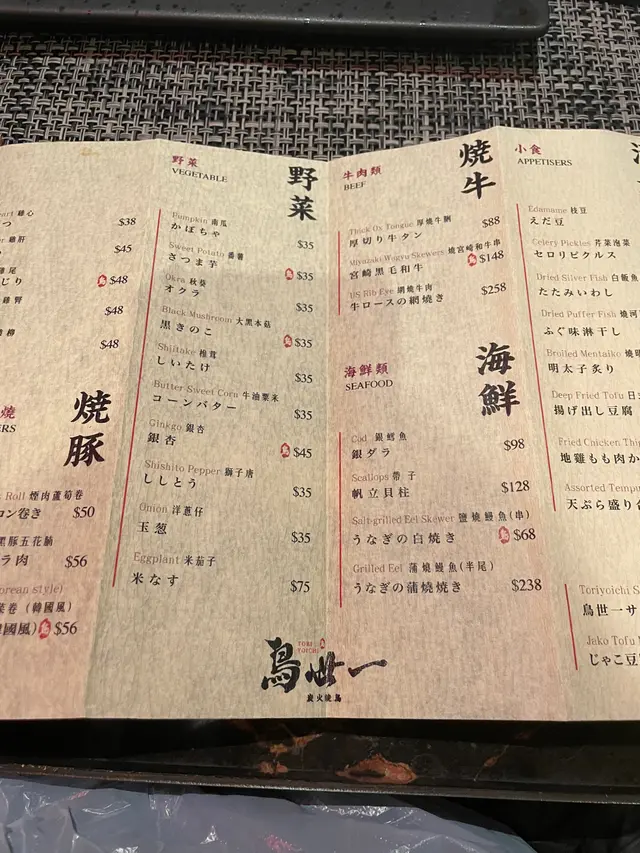 雞心
つ $38
雞肝
$45
じり $48
雞腎
$48
$48
燒
燒豚
Roll 煙肉蘆筍卷
コン巻き $50
黑豚五花腩
ラ肉 $56
(Korean style)
菜卷 (韓國風)
韓國風) $56
野菜
VEGETABLE
野菜
Pumpkin 南瓜
かぼちゃ $35
Sweet Potato 番薯
さつま芋 $35
Okra 秋葵
オクラ $35
Black Mushroom 大黑本菇
黒きのこ $35
Shiitake 椎茸
しいたけ $35
Butter Sweet Corn 牛油粟米
コーンバター $35
Ginkgo 銀杏
銀杏 $45
Shishito Pepper 獅子唐
ししとう $35
Onion 洋蔥仔
玉葱 $35
Eggplant 米茄子
米なす $75
牛肉類
BEEF
燒牛
Thick Ox Tongue 厚燒牛脷
厚切り牛タン $88
Miyazaki Wagyu Skewers 燒宮崎和牛串
宮崎黒毛和牛 $148
US Rib Eye 網燒牛肉
牛ロースの網焼き $258
海鮮類
SEAFOOD
海鮮
Cod 銀鱈魚
銀ダラ $98
Scallops 帶子
帆立貝柱 $128
Salt-grilled Eel Skewer 鹽燒鰻魚(串)
うなぎの白焼き $68
Grilled Eel 蒲燒鰻魚(半尾)
うなぎの蒲燒焼き $238
小食
APPETISERS
Edamame 枝豆
えだ豆
Celery Pickles 芹菜泡菜
セロリピクルス
Dried Silver Fish 白飯魚
たたみいわし
Dried Puffer Fish 燒河
ふぐ味淋干し
Broiled Mentaiko 燒明
明太子炙り
Deep Fried Tofu 日
揚げ出し豆腐
Fried Chicken Thig
地雞もも肉か
Assorted Tempu
天ぷら盛り合
Toriyoichi Sa
鳥世一サ
Jako Tofu
じゃこ豆
鳥世一
TORI
YOICHI
炭火燒鳥